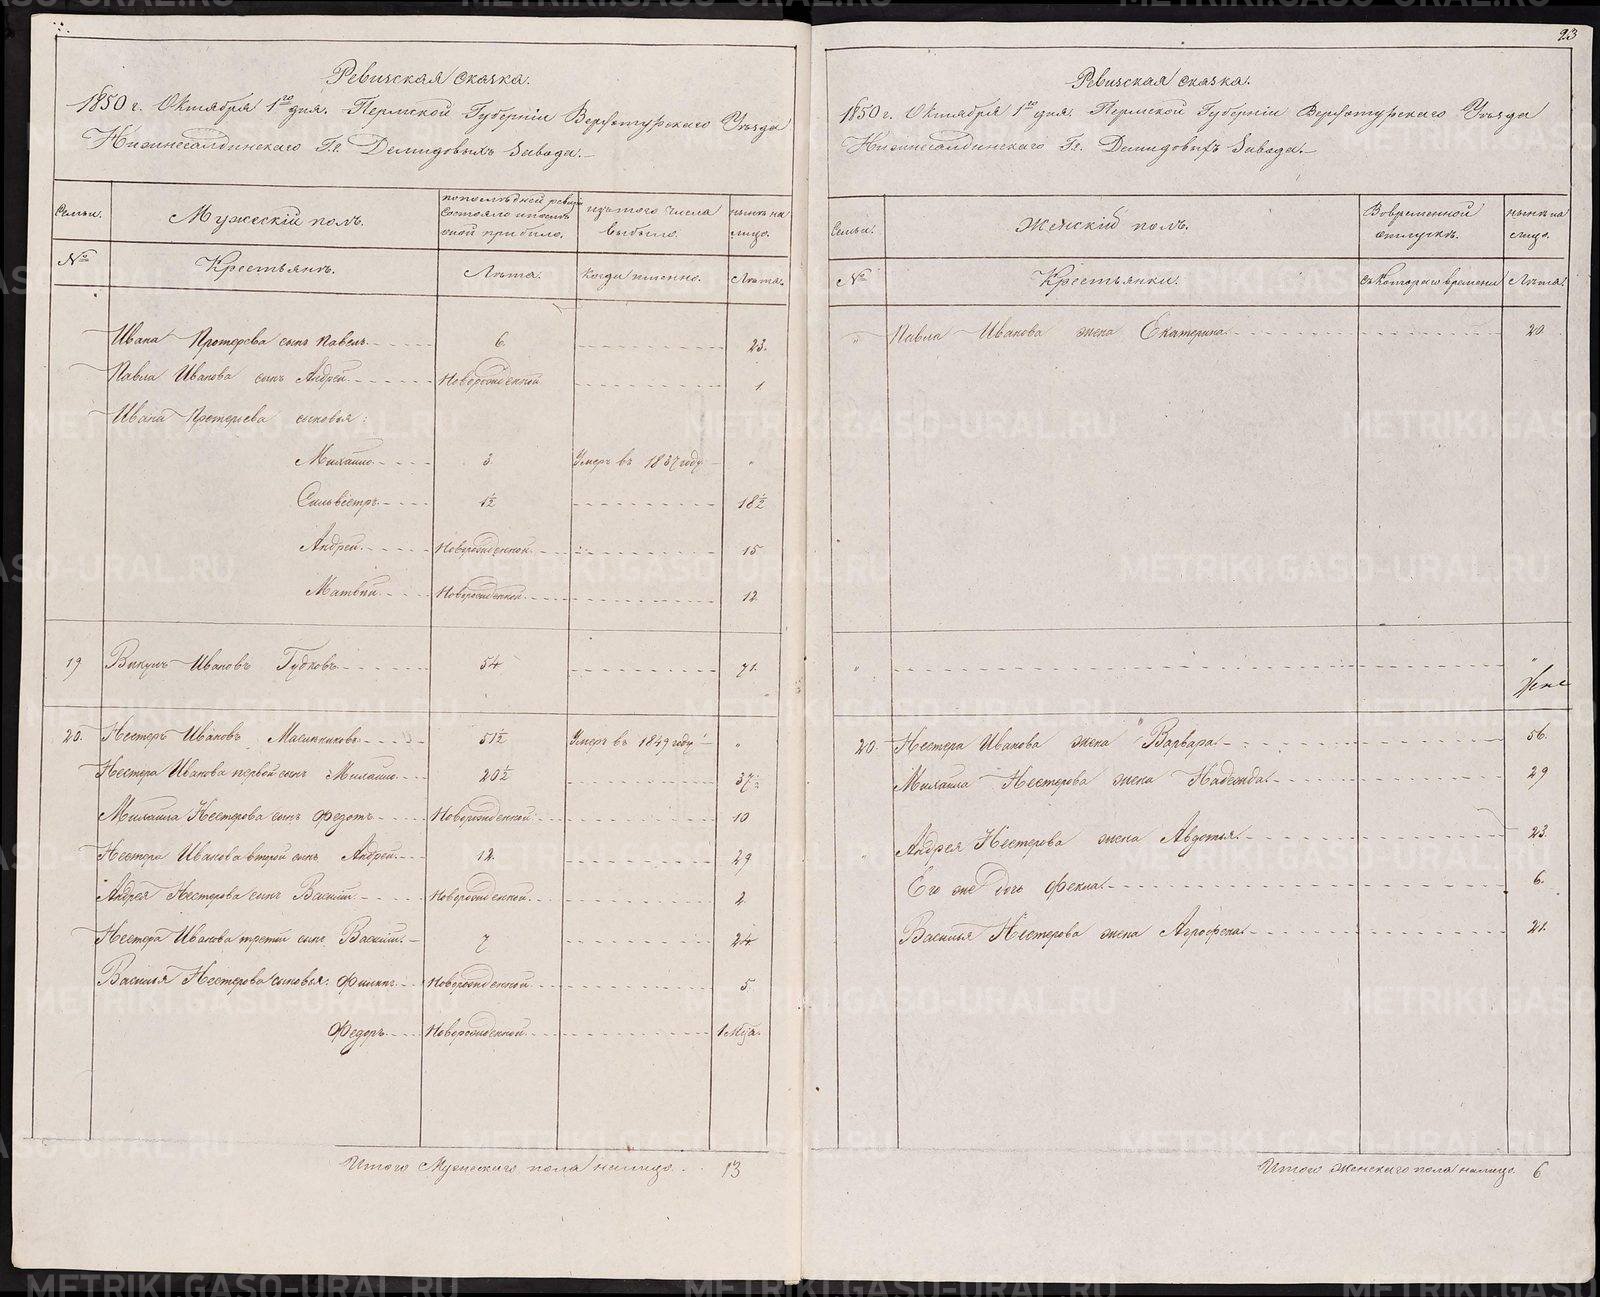 Ревизская сказка.
1850 г. Октября 1го дня. Пермской Губернiи Верхотурскаго Уѣзда
Нижнесалдинскаго Гг. Демидовыхъ Завода.
Семьи.
Мужескiй полъ.
по последней ревизiи состояло и после оной прибыло.
изъ того числа выбыло.
нынѣ на лицо.
№
Крестьянъ.
Лѣта.
Когда именно.
Лѣта.
Ивана Протерева сынъ Павелъ 6 23.
Павла Иванова сынъ Андрей Новорожденной 1
Ивана Протерьева сыновья:
Михаило 3. Умеръ въ 1837 году „
Сильвестръ 1½ 18½
Андрей Новорожденной 15
Матвѣй Новорожденной 12
19 Викулъ Ивановъ Гудковъ 54 71.
20. Нестеръ Ивановъ 51½ Умеръ въ 1849 году „
Нестера Иванова первой сынъ Михаило 20½ 37½
Михаила Нестерова сынъ Федотъ Новорожденной 10
Нестера Иванова второй сынъ Андрей 12. 29
Андрея Нестерова сынъ Василiй Новорожденной 2
Нестера Иванова третiй сынъ Василiй 7 24
Василья Нестерова сыновья: Филипъ Новорожденной 5
Федоръ Новорожденной 1 Мца.
Итого Мужескаго пола налицо 13
23
Ревизская сказка.
1850 г. Октября 1го дня. Пермской Губернiи Верхотурскаго Уѣзда
Нижнесалдинскаго Гг. Демидовыхъ Завода.
Семьи.
Женскiй полъ.
Во временной отлучкѣ.
нынѣ на лицо.
№
Крестьянки.
съ котораго времени
Лѣта.
„ Павла Иванова жена Екатерина 20.
„ „
20. Нестера Иванова жена Варвара 56.
Михаила Нестерова жена Надежда 29
„ Андрея Нестерова жена Авдотья 23.
Его же дочь Фекла 6.
Василья Нестерова жена Агрофена 21.
Итого женскаго пола налицо 6
METRIKI.GASO-URAL.RU